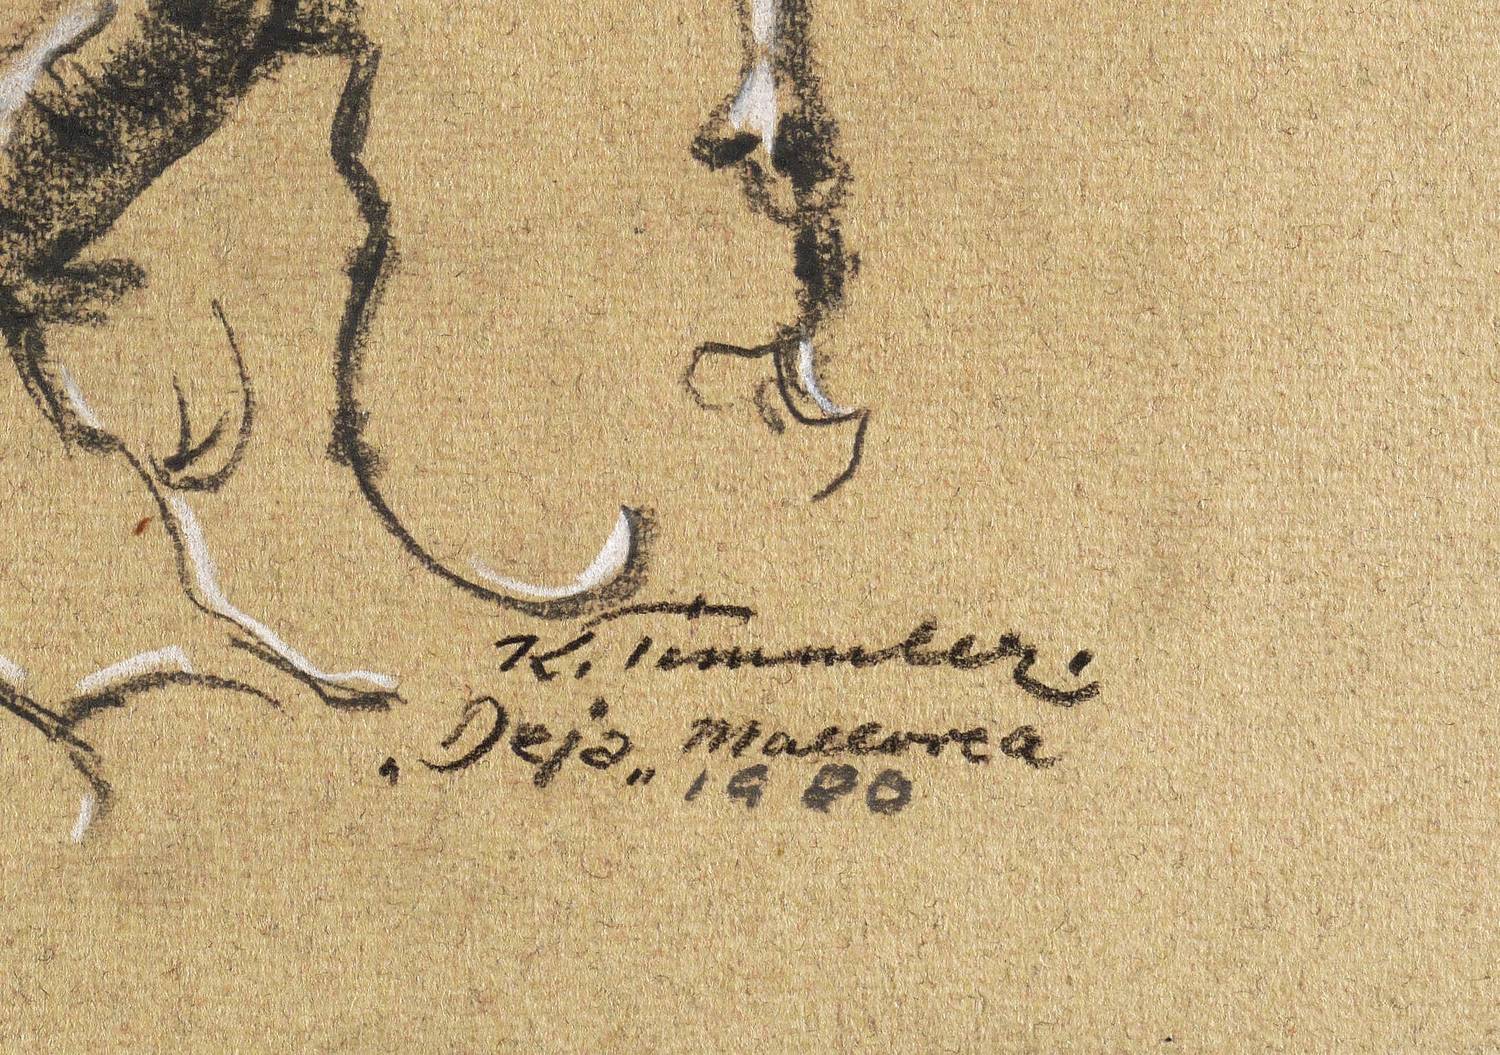 K. Timmler.
„Deja„ Mallorca
1980